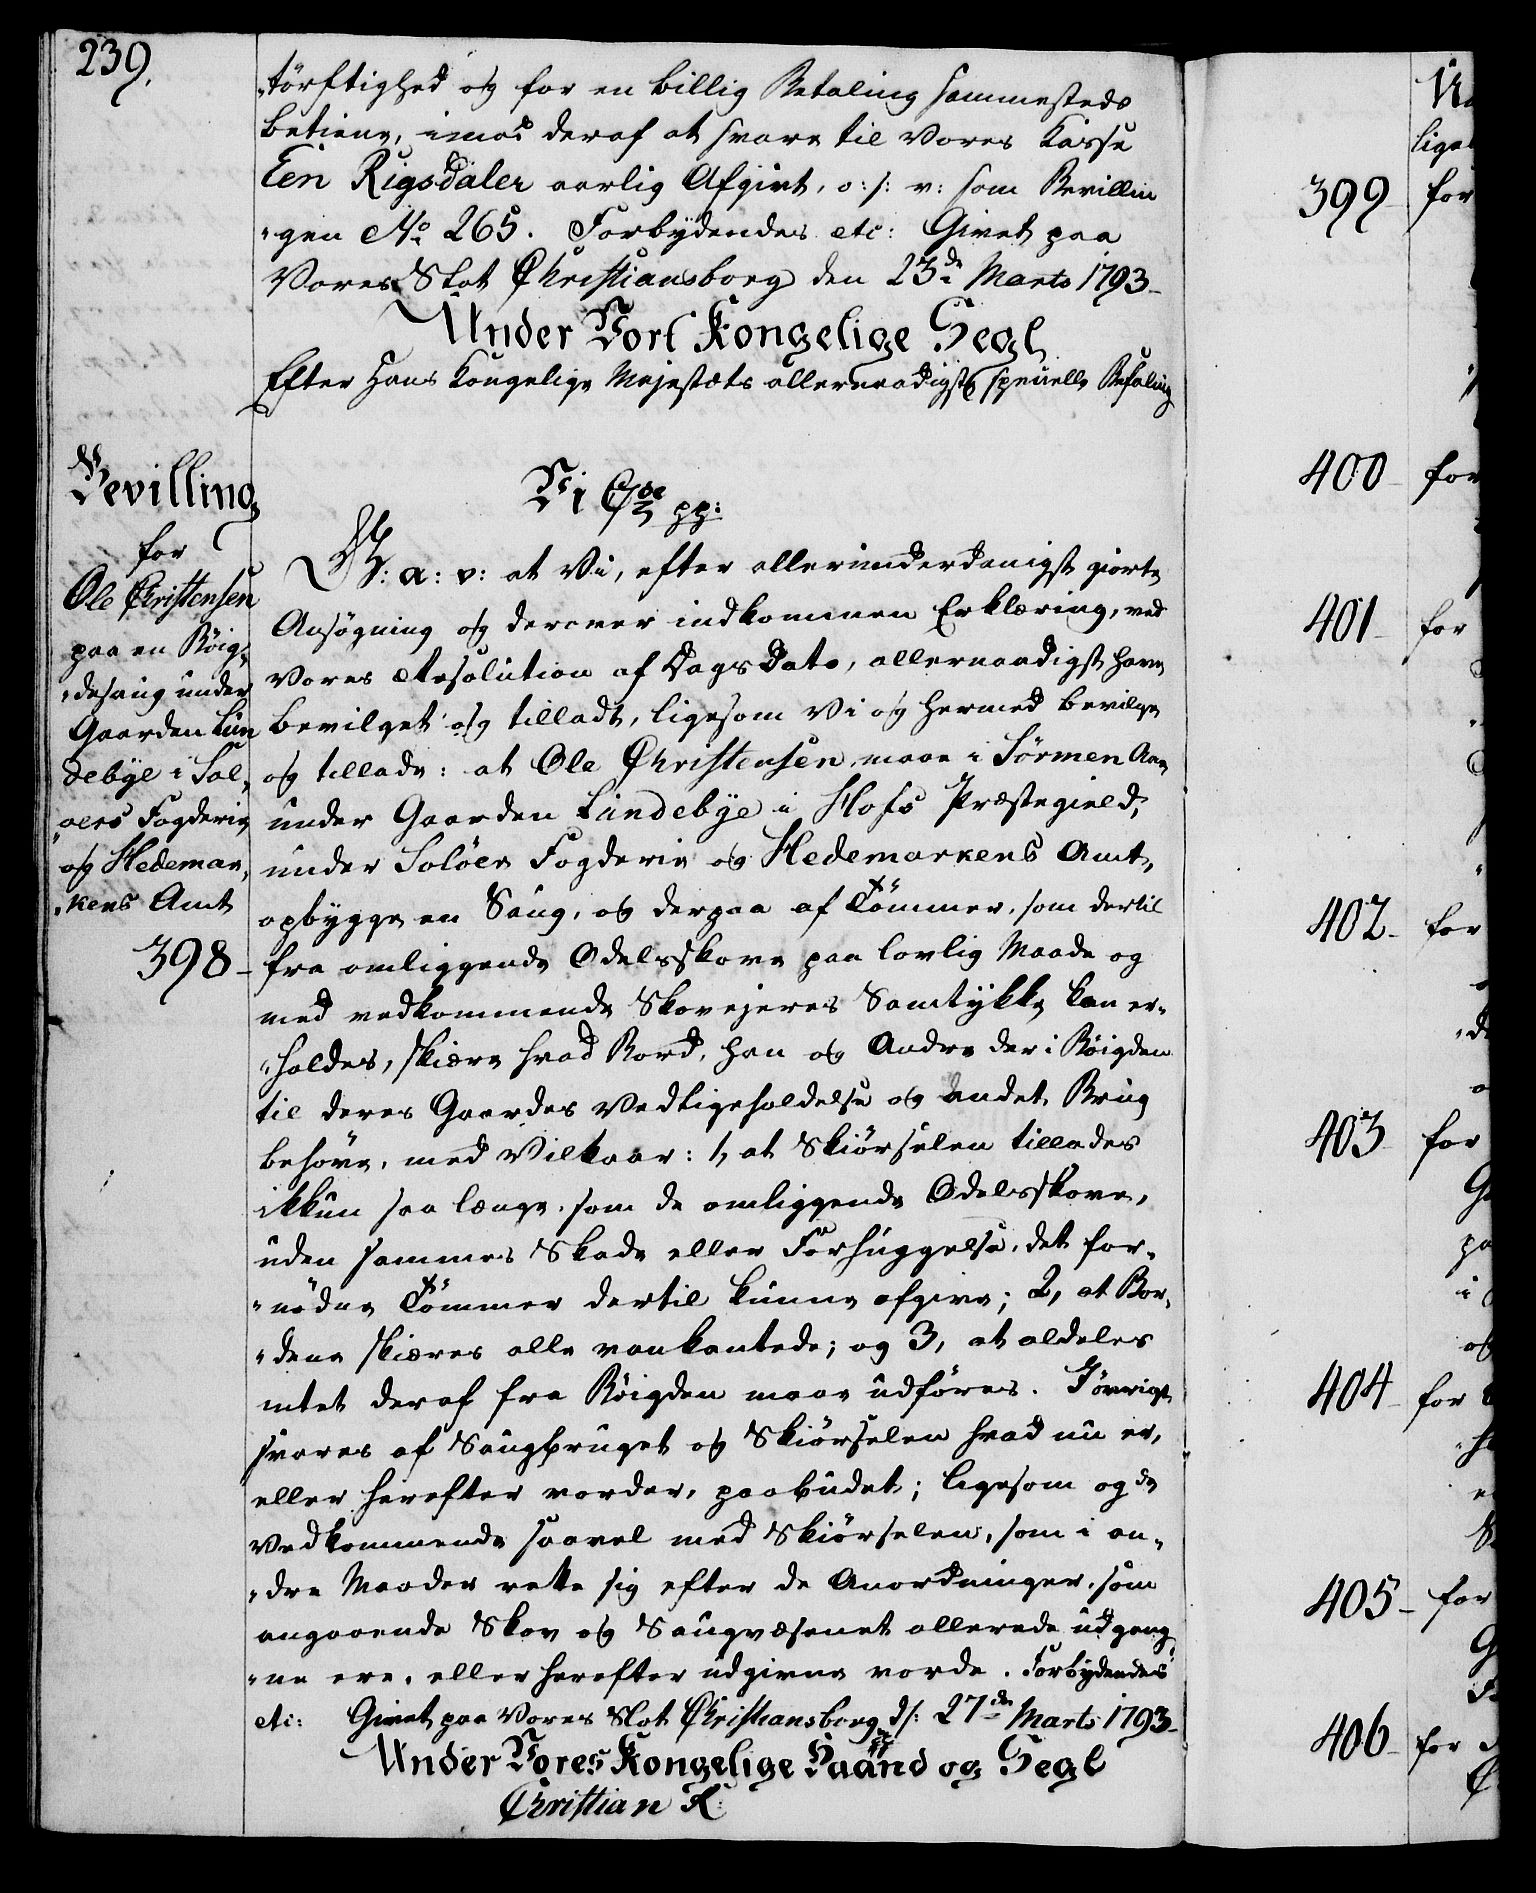 239.
„törftighed og for en billig Betaling sammesteds
betiene, imod deraf at svare til Vores Kasse
Een Rigsdaler aarlig Afgivt, o: s: v: som Bevillin
„gen No 265. Forbydendes etc: Givet paa
Vores Slot Christiansborg den 23de Marts 1793
Under Vort Kongelige Segl
Efter Hans Kongelige Majestæts allernaadigste specielle Befaling
Bevilling
for
Ole Christensen
paa en Böig„
„desaug under
Gaarden Lun
debÿe i Sol„
„oers Fogderie
og Hedemar„
„kens Amt
398
Vi C 7de pp:
G: a: v: at Vi, efter allerunderdanigst giorte
Ansögning og derover indkommen Erklæring, ved
Vores Resolution af Dags Dato, allernaadigst have
bevilget og tilladt, ligesom Vi og hermed bevilge
og tillade: at Ole Christensen maae i Sörmen Aae
under Gaarden Lundebÿe i Hofs Præstegield,
under Soløer Fogderie og Hedemarkens Amt,
opbygge en Saug, og derpaa af Tömmer, som dertil
fra omliggende Odelsskove paa lovlig Maade og
med vedkommende Skovejeres Samtÿkke kan er„
„holdes, skiære hvad Bord, han og Andre der i Böigden
til deres Gaardes Vedligeholdelse og andet Brug
behöve, med Vilkaar: 1, at Skiörselen tillades
ikkun saa længe, som de omliggende Odelsskove,
uden sammes Skade eller Forhuggelse, det for„
„nödne Tömmer dertil kunne afgive; 2, at Bor„
„dene skiæres alle vankantede; og 3, at aldeles
intet deraf fra Böigden maae udföres. Iövrigt
svares af Saugbruget og Skiörselen hvad nu er,
eller herefter vorder, paabudet; ligesom og de
Vedkommende saavel med Skiörselen, som i an„
„dre Maader rette sig efter de Anordninger, som
angaaende Skov og Saugvæsenet allerede udgang„
„ne ere, eller herefter udgivne vorde. Forbydendes
etc: Givet paa Vores Slot Christiansborg d: 27de Marts 1793
Under Vores Kongelige Haand og Segl
Christian R:
399 for
400 for
401 for
402 for
403 for
404 for
405 for
406 for